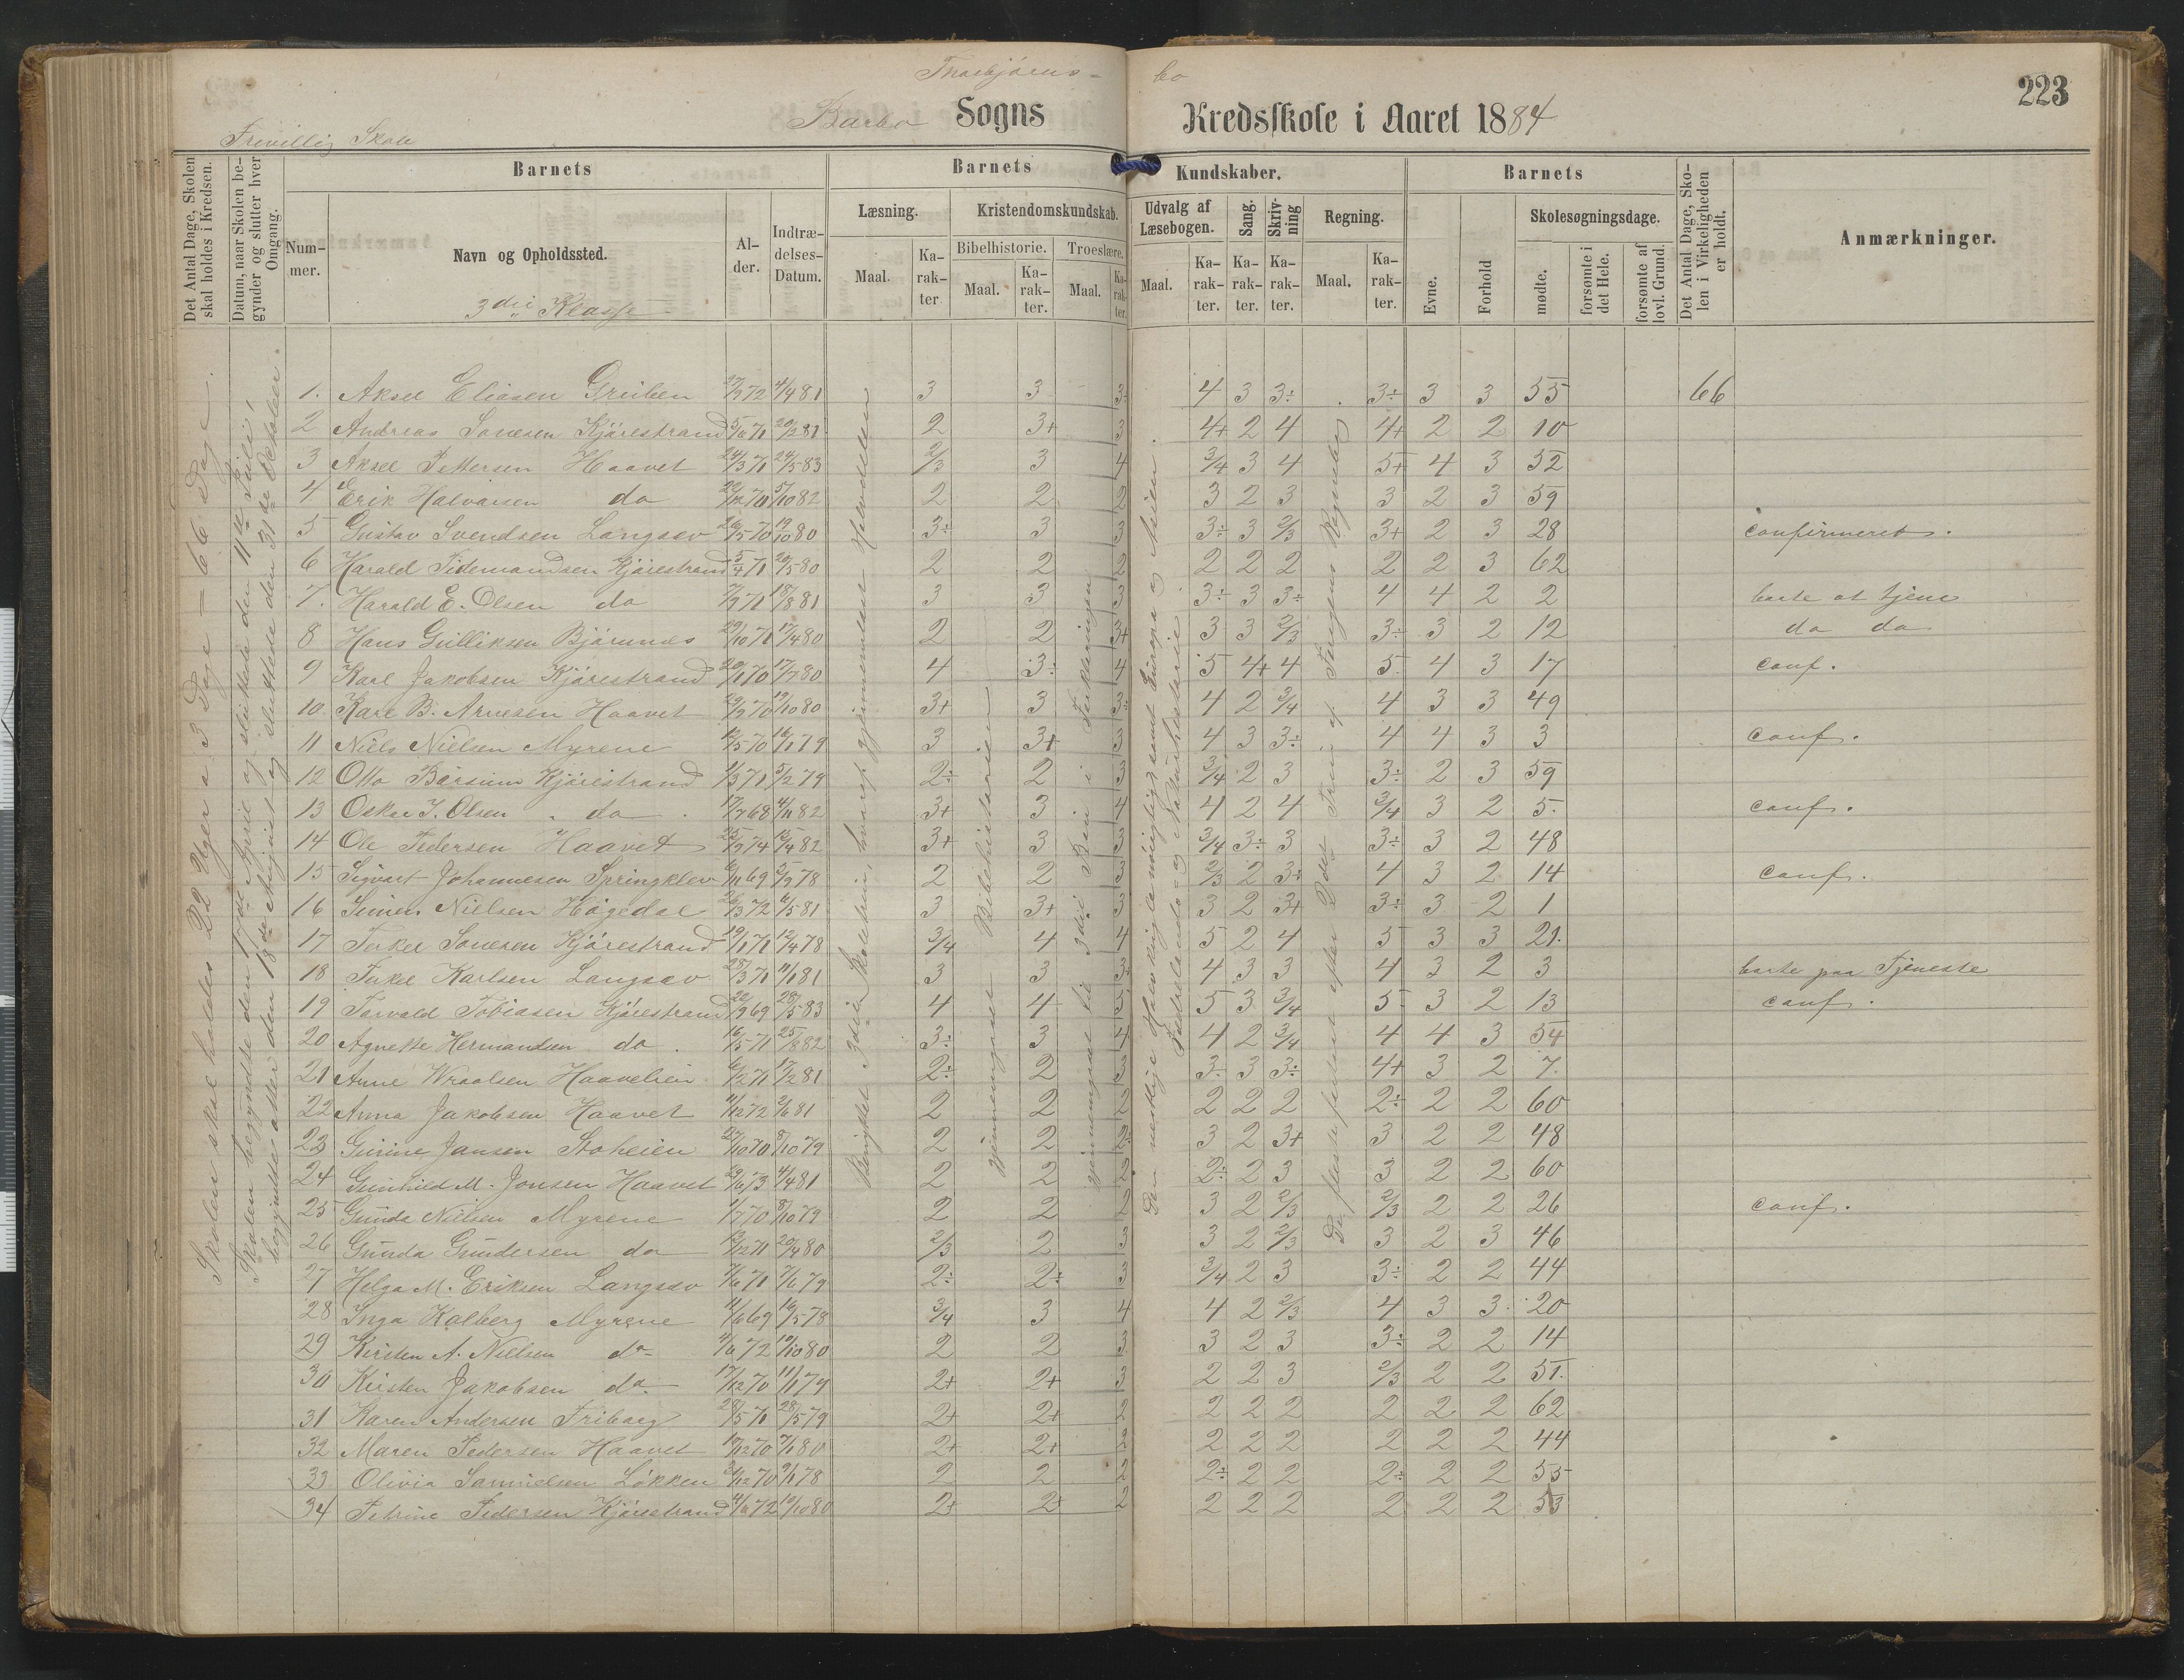 Thorbjörns-
bo
223
Barbo Sogns Kredsskole i Aaret 1884
Frivillig Skole
Det Antal Dage, Skolen skal holdes i Kredsen.
Datum, naar Skolen begynder og slutter hver Omgang.
Barnets
Nummer.
Navn og Opholdssted.
3die Klasse
Alder.
Indtrædelses-Datum.
Barnets Kundskaber.
Læsning.
Maal.
Karakter
Kristendomskundskab.
Bibelhistorie.
Maal.
Karakter.
Troeslære.
Maal.
Karakter.
Udvalg af Læsebogen.
Maal.
Karakter.
Sang.
Karakter.
Skrivning
Karakter.
Regning.
Maal.
Karakter.
Barnets
Evne.
Forhold
Skolesøgningsdage.
mødte.
forsømte i det Hele.
forsømte af lovl. Grund.
Det Antal Dage, Skolen i Virkeligheden er holdt.
Anmærkninger.
Skolen skal holdes 22 Uger a 3 Dage = 66 Dage.
Skolen begyndte den 17de April og sluttede den 11te Juli,
begyndte atter den 18de August og sluttede den 31te Oktober.
gjennemgaaet Bibelhistorien
1. Aksel Eliasen Greiben 27/2 72 4/4 81 3 3 3÷ 4 3 3÷ 3÷ 3 3 55 66
2 Andreas Sonesen Kjörestrand 5/6 71 20/2 81 2 3+ 3 4+ 2 4 4+ 2 2 10
3 Aksel Pettersen Haavet 24/3 71 24/5 83 2/3 3 4 3/4 3 4 5+ 4 3 52
4 Erik Halvorsen do 22/12 70 5/10 82 2 2 2 3 2 3 3 2 3 59
5 Gustav Svendsen Langsev 26/5 70 19/10 80 3÷ 3 3 3÷ 3 2/3 3+ 2 3 28 confirmeret.
6 Harald Tidemandsen Kjörestrand 5/4 71 20/5 80 2 2 2 2 2 2 2 2 3 62
7. Harald E. Olsen do 7/9 71 18/8 81 3 3 3 3÷ 3 3÷ 4 4 2 2 borte at tjene
8 Hans Gulliksen Bjørnnes 29/10 71 17/4 80 2 2 3+ 3 3 2/3 3÷ 3 2 12 do do
9 Karl Jakobsen Kjörestrand 20/1 70 17/7 80 4 3÷ 4 5 4+ 4 5 4 3 17 conf.
10. Karl B. Arnesen Haavet 29/9 70 19/10 80 3+ 3 3÷ 4 2 3/4 4 3 3 49
11 Niels Nielsen Myrene 12/5 70 16/1 79 3 3+ 3 4 3 3÷ 4 4 3 3 conf.
12 Otto Børsum Kjörestrand 1/3 71 5/2 79 2÷ 2 3 3/4 2 3 3÷ 2 3 59
13 Oskar J. Olsen do 17/7 68 4/11 82 3+ 3 4 4 2 4 3/4 3 2 5. conf.
14 Ole Pedersen Haavet 25/9 74 12/4 82 3+ 3 3 3/4 3÷ 3 3÷ 3 2 48
15 Sigvart Johannesen Springklev 6/11 69 5/9 78 2 2 3 2/3 2 3+ 4 3 2 14 conf.
16 Simen Nielsen Högedal 26/3 72 6/5 81 3 3+ 3 3 2 3+ 3÷ 3 2 1
17 Terkel Sonesen Kjörestrand 19/1 71 12/4 78 3/4 4 4 5 2 4 5 3 3 21.
18 Terkel Karlsen Langsev 28/3 71 11/1 81 3 3 3÷ 4 3 3 4 3 2 3 borte paa Tjeneste
19 Torvald Tobiasen Kjörestrand 22/9 69 28/5 83 4 4 5 5 3 3/4 5 3 2 13 conf.
20 Agnethe Hermandsen do 16/5 71 25/8 82 3÷ 3 4 4 2 3/4 4 4 3 54
21 Anne Wraalsen Haavelien 6/2 71 17/2 81 2÷ 2 3 3÷ 3 3÷ 4+ 3 2 7.
22 Anna Jakobsen Haavet 11/12 72 2/6 81 2 2 2 2 2 2 2÷ 2 2 60
23 Gurine Jansen Stoheien 27/10 70 8/10 79 2 2 2÷ 3 2 3+ 3 2 2 48
24 Gunhild M. Jonsen Haavet 29/6 73 4/4 81 2 2 2 2÷ 2 3 3 2 2 60
25 Gunda Nielsen Myrene 1/7 70 8/10 79 2 2 2 3 2 2/3 2/3 2 2 26 conf.
26 Gunda Gundersen do 13/12 71 20/4 80 2/3 2 3 3 2 2/3 3 2 3 46
27 Helga M. Eriksen Langsev 7/6 71 7/6 79 2÷ 2÷ 3 3/4 2 3 3÷ 2 2 44
28 Inga Kolberg Myrene 11/6 69 16/5 78 3/4 3 4 4 2 2/3 4 3 3 20
29 Kirsten A. Nielsen do 4/6 72 19/10 80 2 2 3 3 2 3 3÷ 2 2 14
30 Kirsten Jakobsen do. 17/12 70 11/1 79 2+ 2+ 3 2 2 3 2/3 2 2 51.
31 Karen Andersen Friborg 28/5 71 28/5 79 2+ 2+ 2 2 2 2 2 2 2 62
32 Maren Pedersen Haavet 19/12 70 7/1 80 2+ 2+ 2 2 2 2 2 2 2 44
33 Olivia Samuelsen Løkken 31/12 70 9/1 78 2 2 2 2÷ 2 2 2÷ 2 2 55
34 Petrine Pedersen Kjörestrand 4/6 72 19/10 80 2+ 2+ 2 2 2 2 2 2 2 53